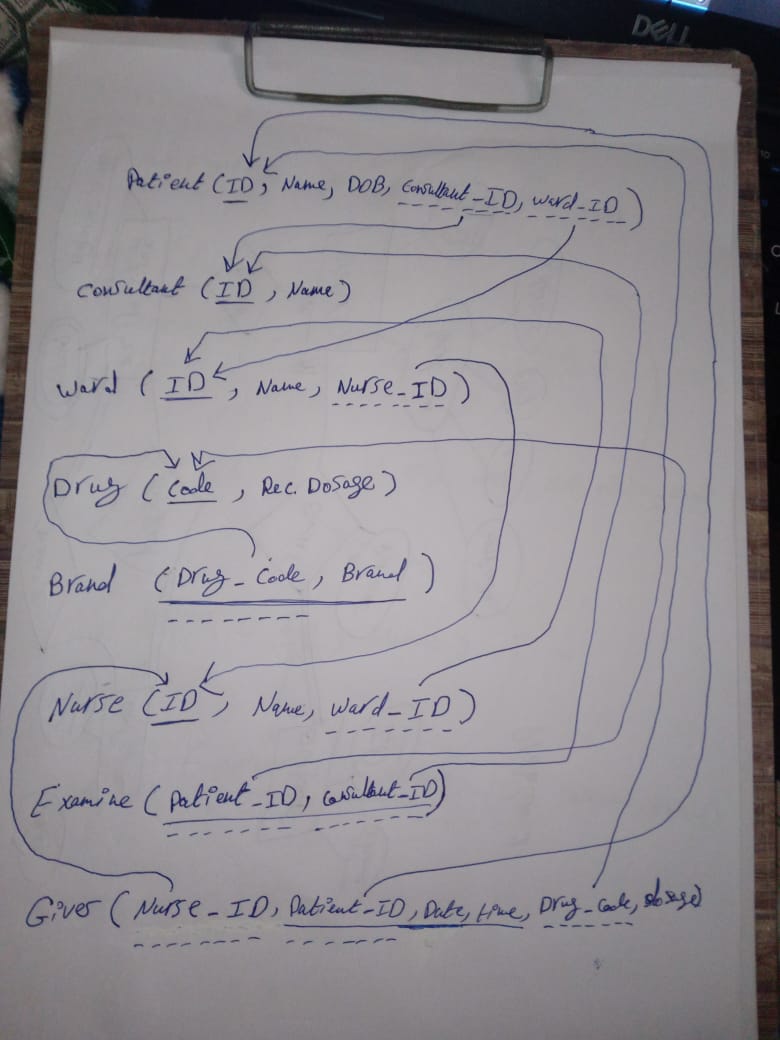 DELL
Patient (ID, Name, DOB, Consultant_ID, Ward_ID)
Consultant (ID, Name)
Ward (ID, Name, Nurse_ID)
Drug (Code, Rec. Dosage)
Brand (Drug_Code, Brand)
Nurse (ID, Name, Ward_ID)
Examine (Patient_ID, Consultant_ID)
Gives (Nurse_ID, Patient_ID, Date, time, Drug_Code, dosage)